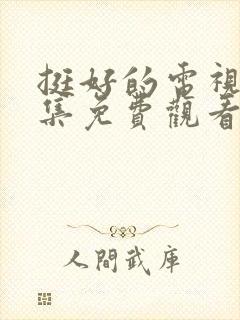 挺好的電視
集免費觀看
人間武庫